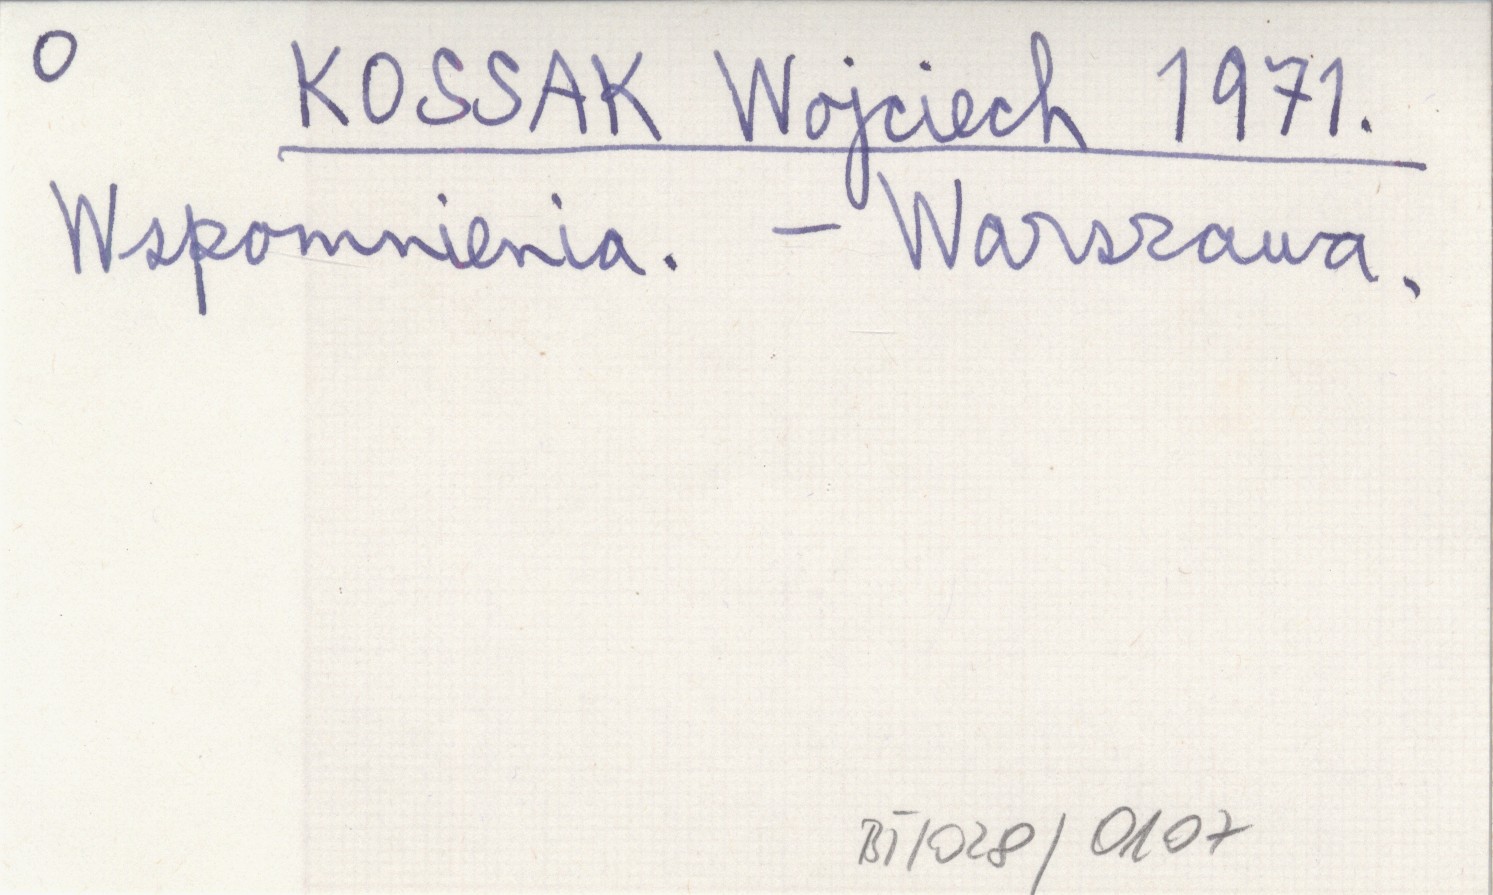 O KOSSAK Wojciech 1971.
Wspomnienia. – Warszawa.
BT/028/0107